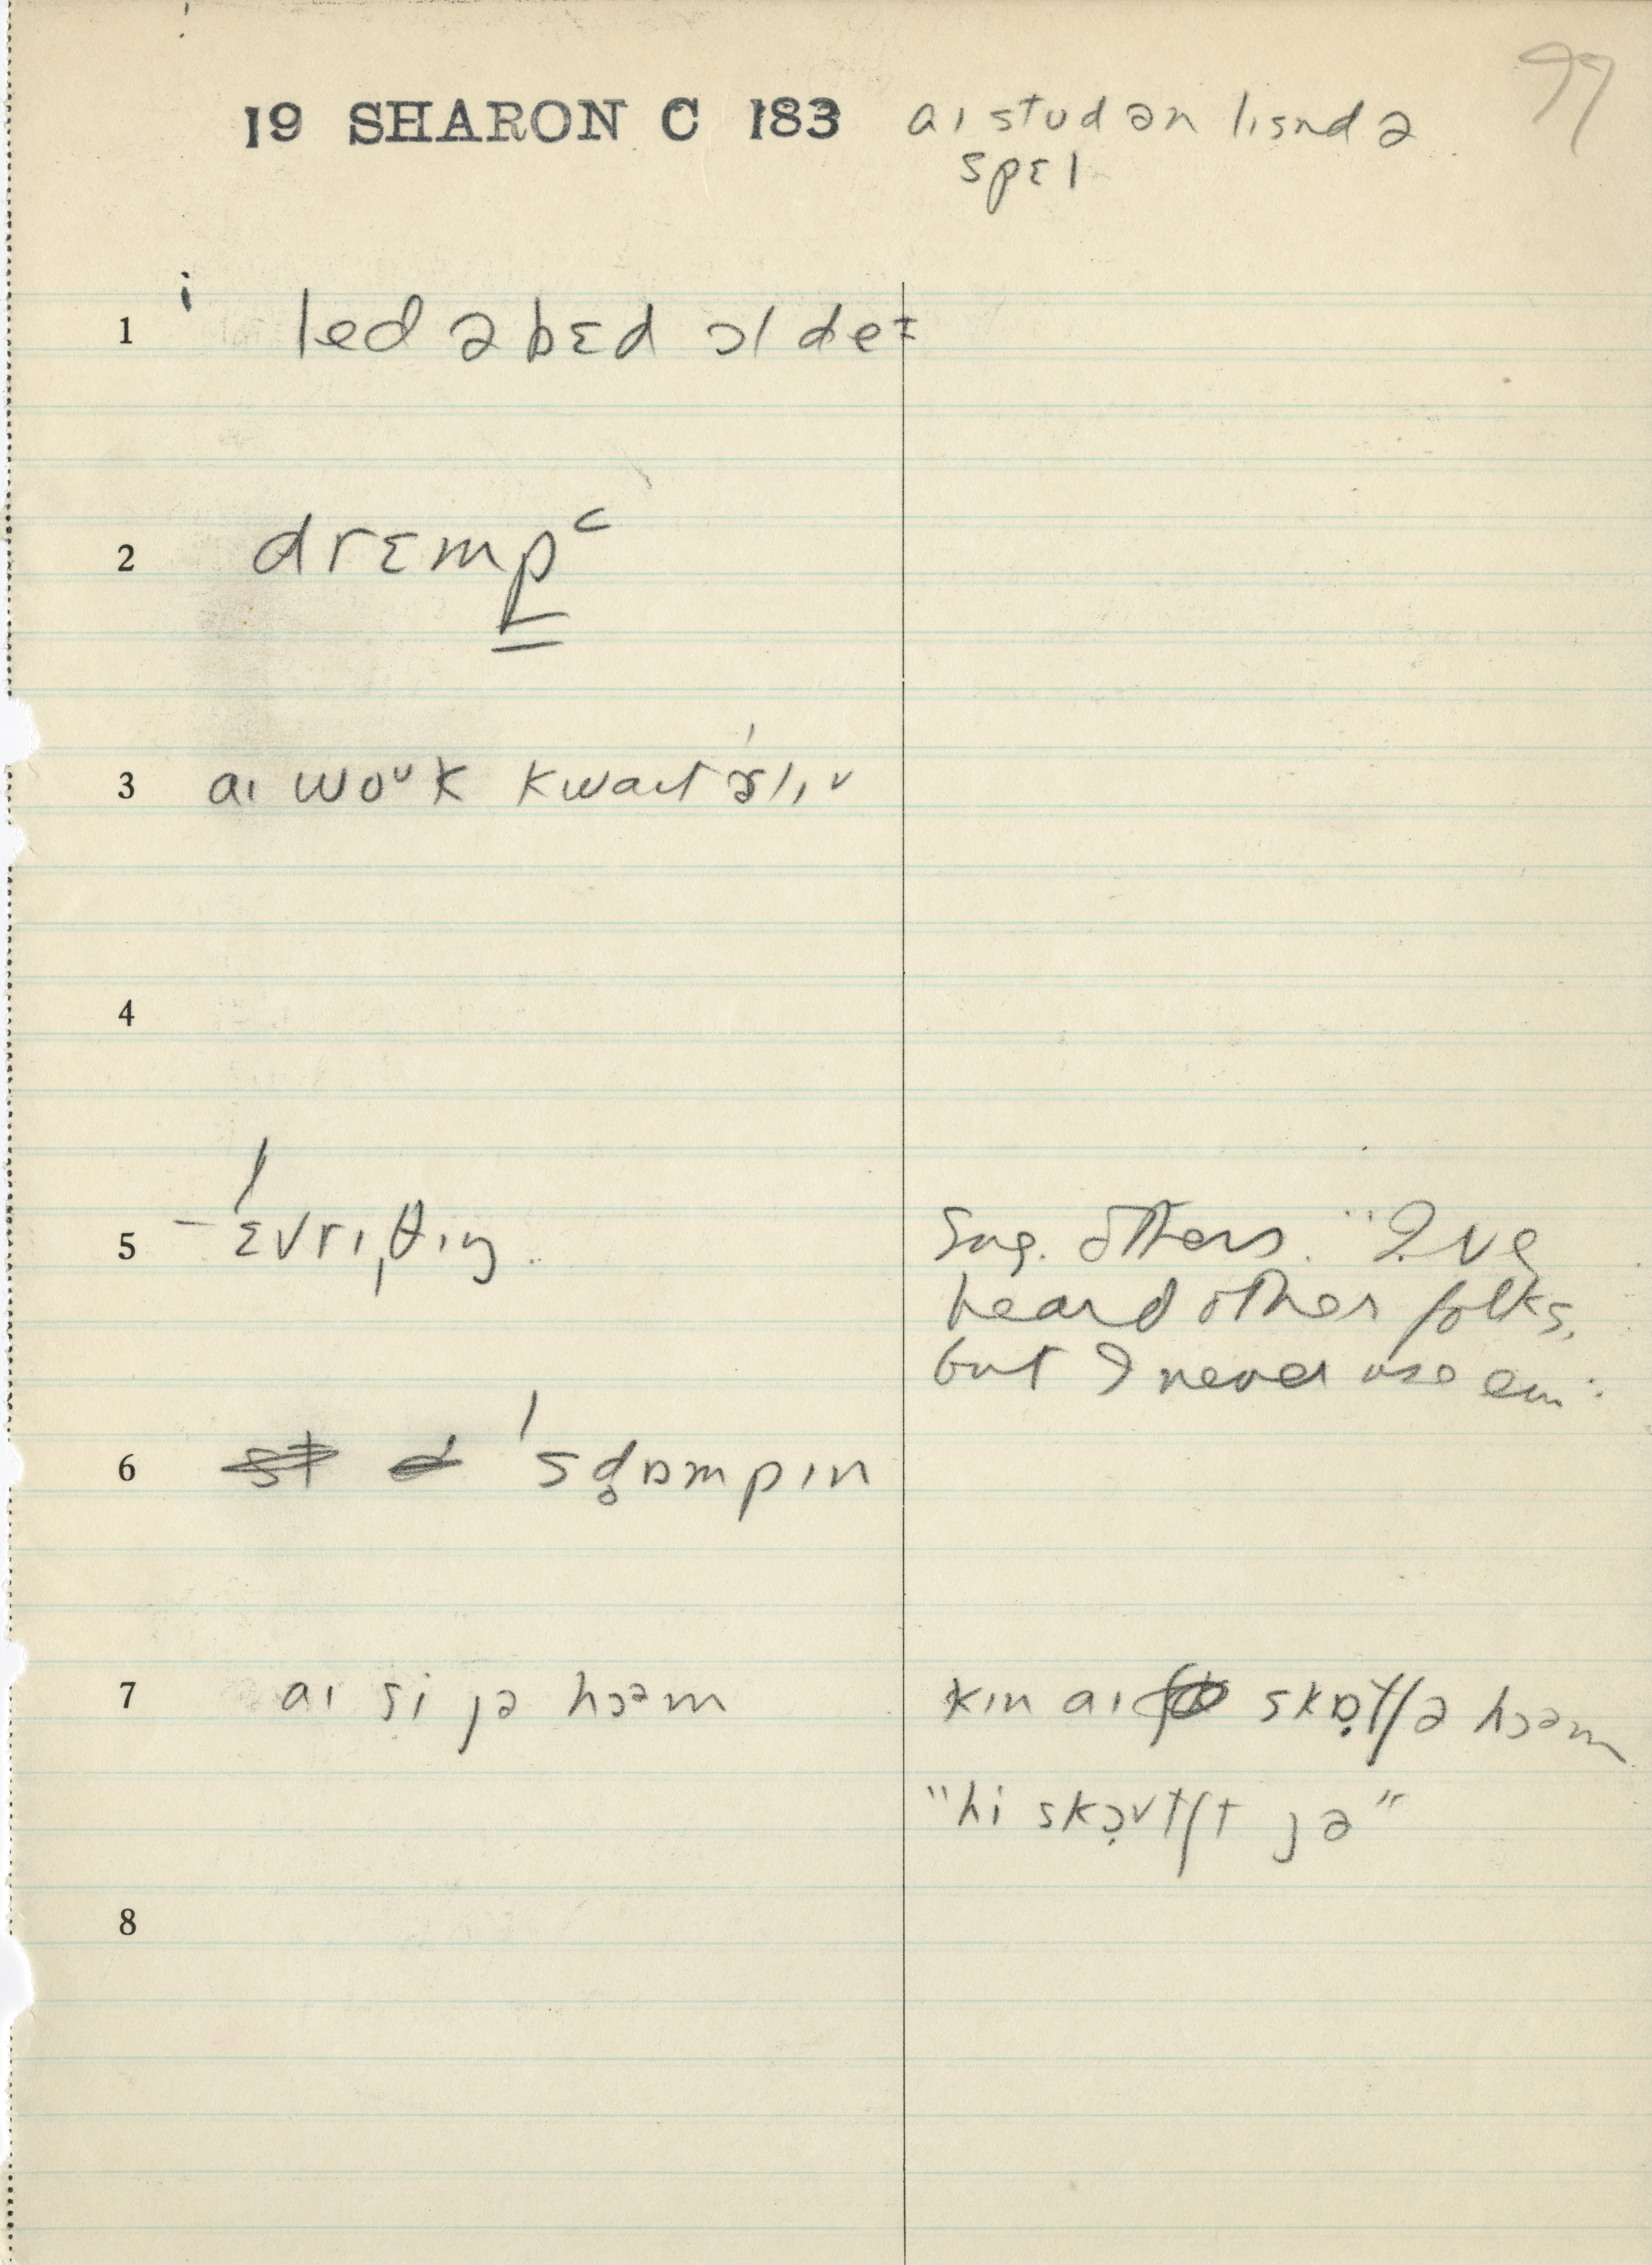 77
19 SHARON C 183 aɪ stʊd ən lɪsnd ə
spɛl
1 i led əbɛd ɔl de
2 drɛmpᶜ
3 aɪ woᵘk kwaɪt
4
5 – ˈɛvrɪˌθɪŋ. Sug. others. "I've
heard other folks,
but I never use em."
6 ˈsd̥ɒmpɪn
7 aɪ si jə hɔəm kɪn aɪ skɒ̣tʃə hɔəm
"hi skɔ̣vtʃt jə"
8